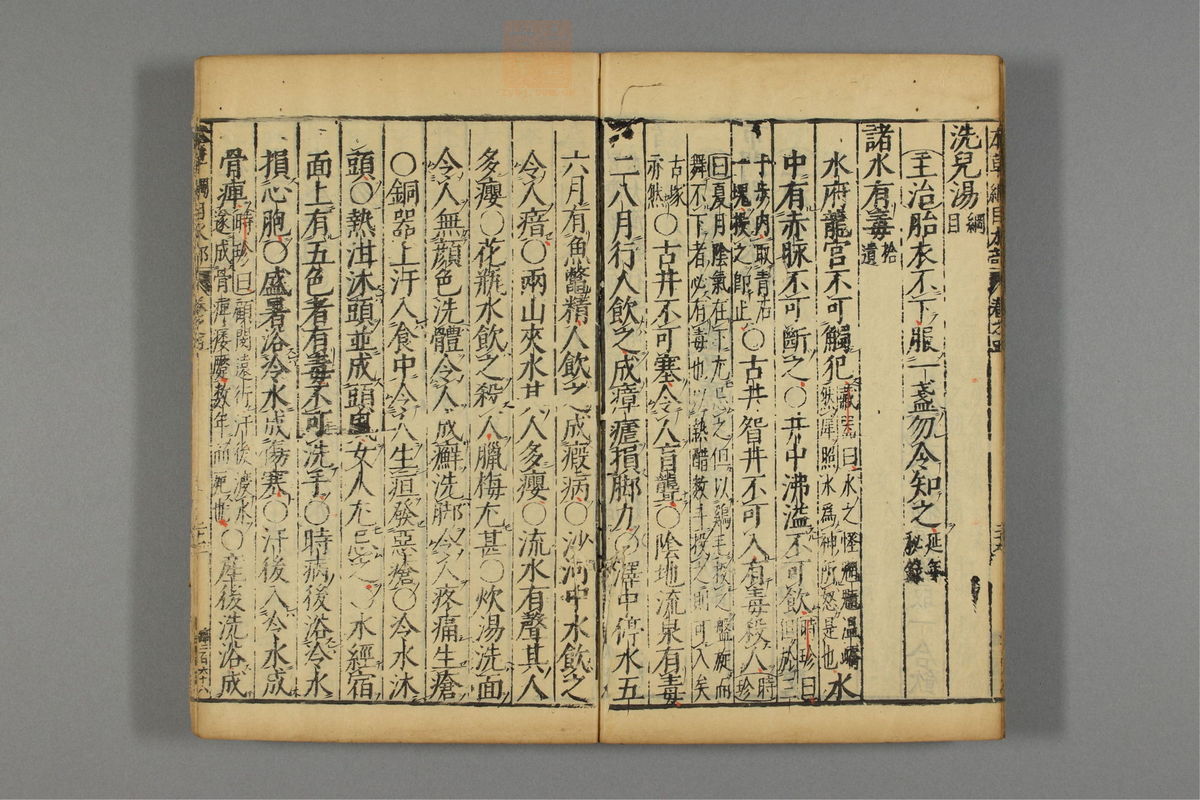 洗兒湯綱目
主治胎衣不下服一盞勿令知之延年秘錄
諸水有毒拾遺
水府龍宮不可觸犯藏器曰水之怪魍魎溫嶠然犀照水為神所怒是也水
中有赤脉不可斷之○井中沸溢不可飲時珍曰但於三
十步內取青石一塊投之即止○古井智井不可入有毒殺人時珍
曰夏月陰氣在下尤忌之但以雞毛投之盤旋而舞不下者必有毒也以熱醋數斗投之則可入矣
古塚亦然○古井不可塞令人盲聾○陰地流泉有毒
二八月行人飲之成瘴瘧損脚力○澤中停水五
六月有魚鱉精人飲之成瘕病○沙河中水飲之
令人瘖○兩山夾水其人多癭○流水有聲其人
多癭○花瓶水飲之殺人臘梅尤甚○炊湯洗面
令人無顏色洗體令人成癬洗脚令人疼痛生瘡
○銅器上汗入食中令人生疽發惡瘡○冷水沐
頭○熱泔沐頭並成頭風女人尤忌之○水經宿
面上有五色者有毒不可洗手○時病後浴冷水
損心胞○盛暑浴冷水成傷寒○汗後入冷水成
骨痺時珍曰顧閔遠行汗後渡水遂成骨痺痿蹷數年而死也○產後洗浴成